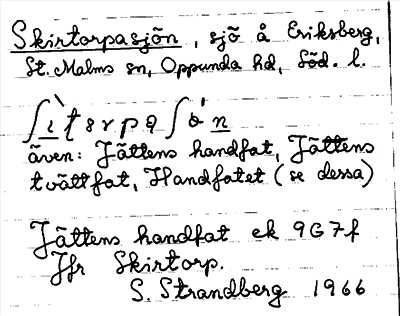 Skirtorpasjön, sjö å Eriksberg,
St. Malms sn, Oppunda hd, Söd. l.
även: Jättens handfat, Jättens
tvättfat, Handfatet (se dessa)
Jättens handfat ek 9G7f
Jfr Skirtorp.
S. Strandberg 1966